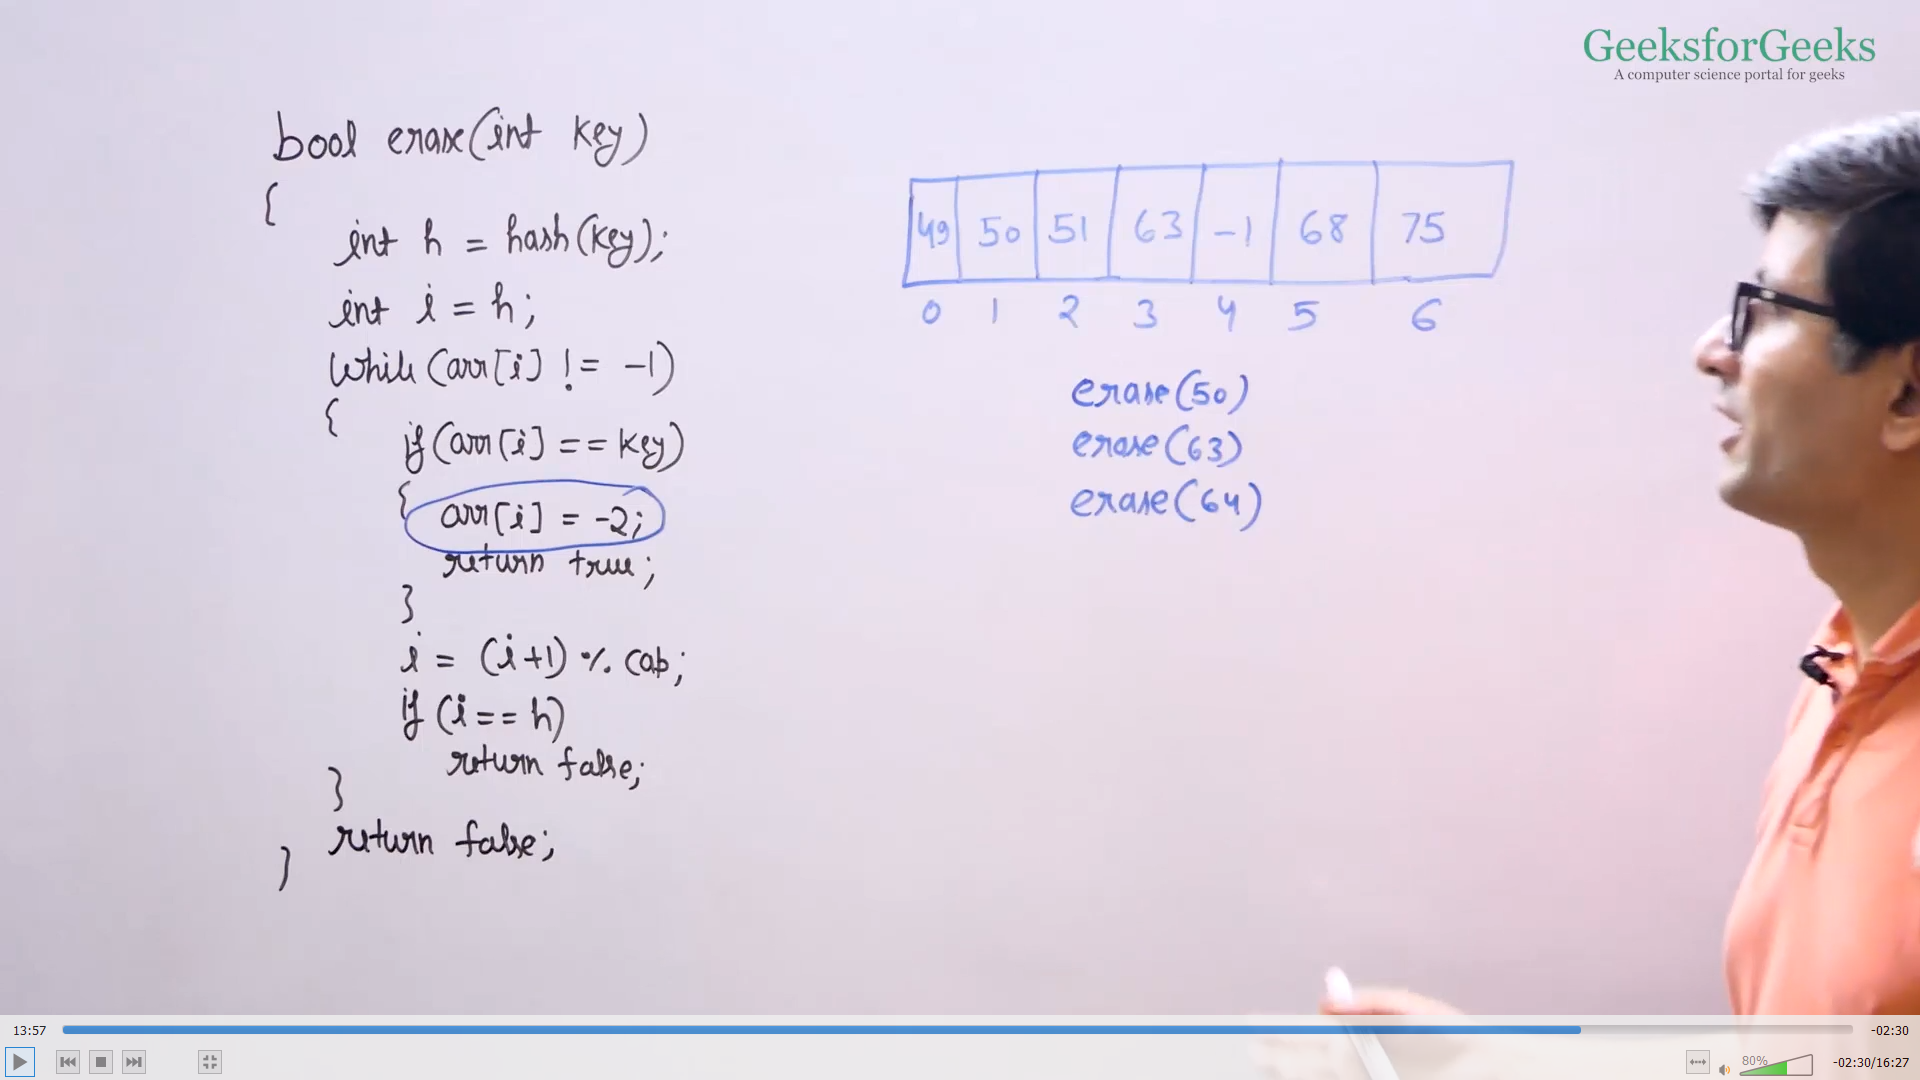 GeeksforGeeks
A computer science portal for geeks
bool erase(int key)
{
int h = hash(key);
int i = h;
while (arr[i] != -1)
{
if (arr[i] == key)
{
arr[i] = -2;
return true;
}
i = (i+1) % cap;
if (i == h)
return false;
}
return false;
}
49 50 51 63 -1 68 75
0 1 2 3 4 5 6
erase(50)
erase(63)
erase(64)
13:57 -02:30
80% -02:30/16:27